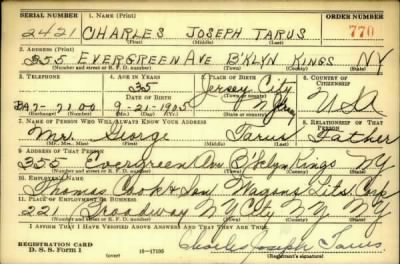 SERIAL NUMBER 1. NAME (Print) ORDER NUMBER
2421 CHARLES JOSEPH TARUS 770
(First) (Middle) (Last)
2. ADDRESS (Print)
355 EVERGREEN AVE B'KLYN KINGS NY
(Number and street or R. F. D. number) (Town) (County) (State)
3. TELEPHONE 4. AGE IN YEARS 5. PLACE OF BIRTH 6. COUNTRY OF CITIZENSHIP
35 Jersey City
DATE OF BIRTH
9-21-1905 N. Jersey USA
7. NAME OF PERSON WHO WILL ALWAYS KNOW YOUR ADDRESS 8. RELATIONSHIP OF THAT PERSON
Mr. George Tarus Father
(Mr., Mrs., Miss) (First) (Middle) (Last)
9. ADDRESS OF THAT PERSON
355 Evergreen Ave B'klyn Kings NY
(Number and street or R. F. D. number) (Town) (County) (State)
10. EMPLOYER'S NAME
Thomas Cook & Son Wagons Lits. Corp
11. PLACE OF EMPLOYMENT OR BUSINESS
221 Broadway NYCity NY NY
(Number and street or R. F. D. number) (Town) (County) (State)
I AFFIRM THAT I HAVE VERIFIED ABOVE ANSWERS AND THAT THEY ARE TRUE.
REGISTRATION CARD
D. S. S. Form 1 (over) 16—17105 Charles Joseph Tarus
(Registrant's signature)